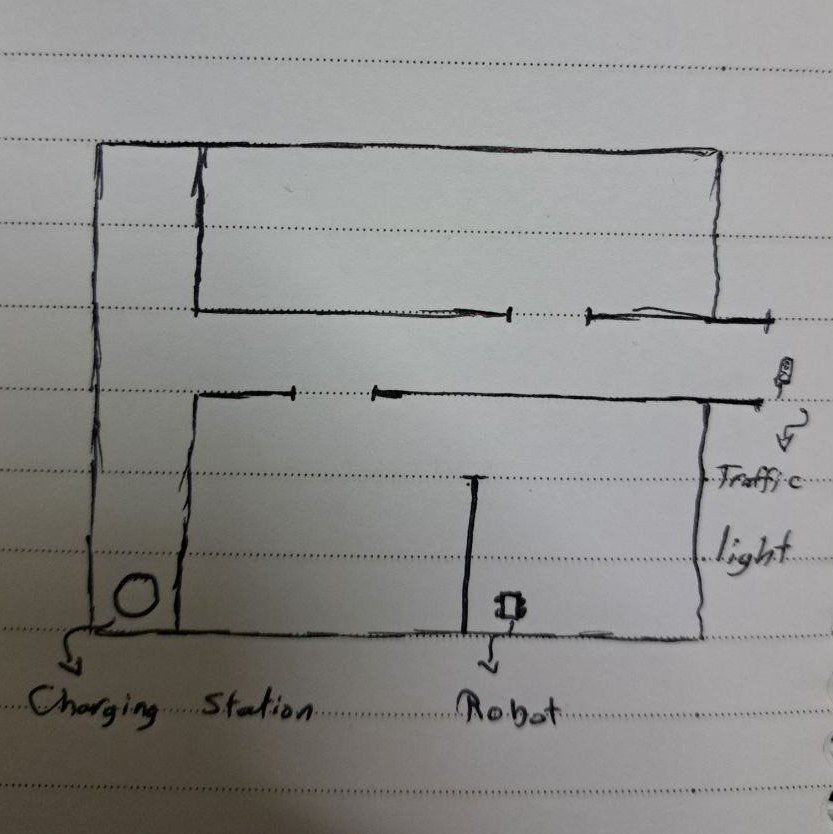 Traffic
light
Charging Station
Robot